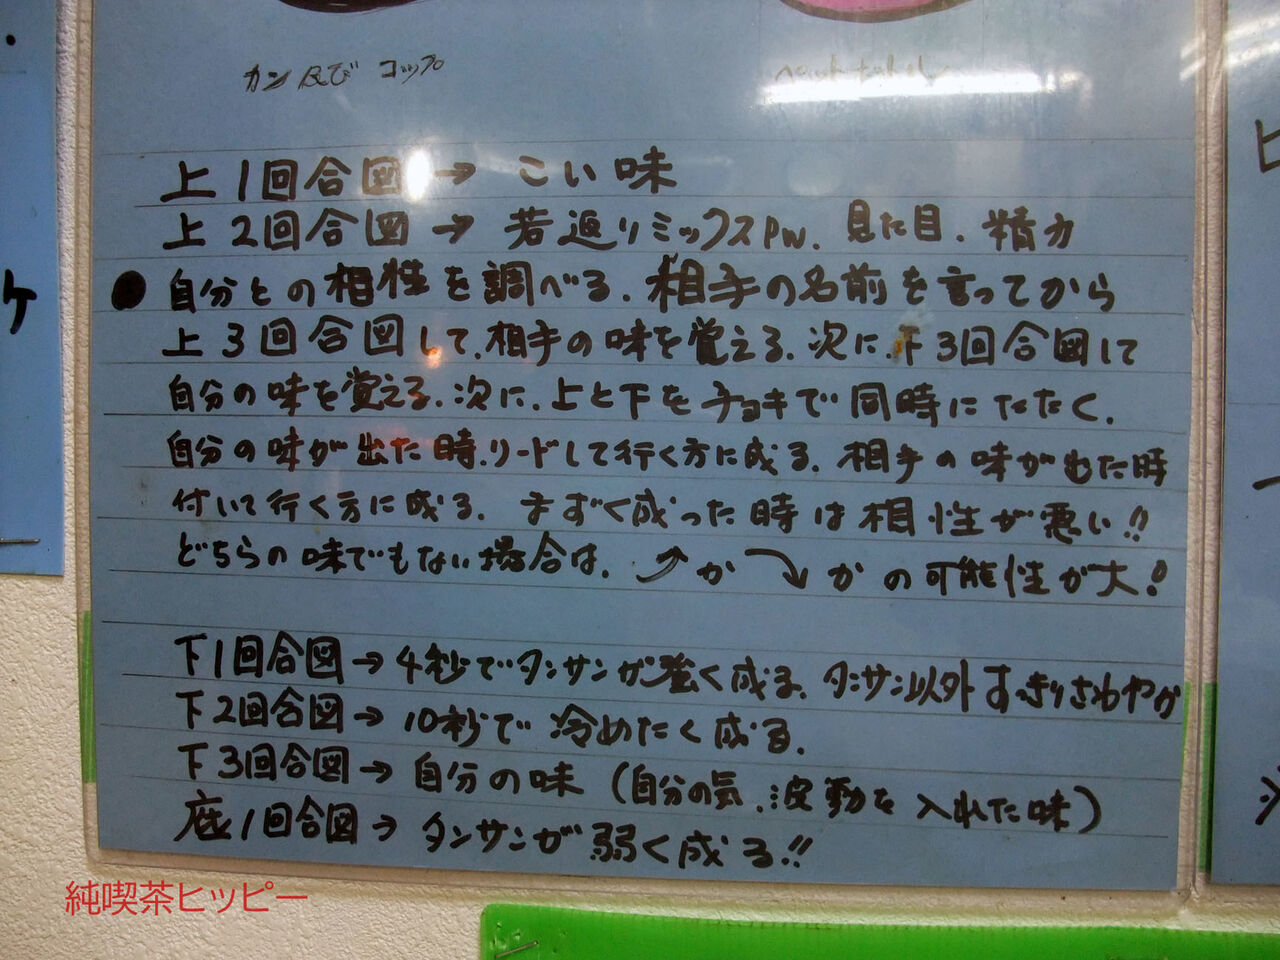 カン及び コップ
ペットボトル
上1回合図→こい味
上2回合図→若返りミックスPW. 見た目. 精力
●自分との相性を調べる. 相手の名前を言ってから
上3回合図して. 相手の味を覚える. 次に. 下3回合図して
自分の味を覚える. 次に. 上と下をチョキで同時にたたく.
自分の味が出た時. リードして行く方に成る. 相手の味が出た時
付いて行く方に成る. まずく成った時は相性が悪い!!
どちらの味でもない場合は. ⤴か⤵かの可能性が大!
下1回合図→4秒でタンサンが強く成る. タンサン以外すっきりさわやか
下2回合図→10秒で冷めたく成る.
下3回合図→自分の味(自分の気. 波動を入れた味)
底1回合図→タンサンが弱く成る!!
ケ
純喫茶ヒッピー